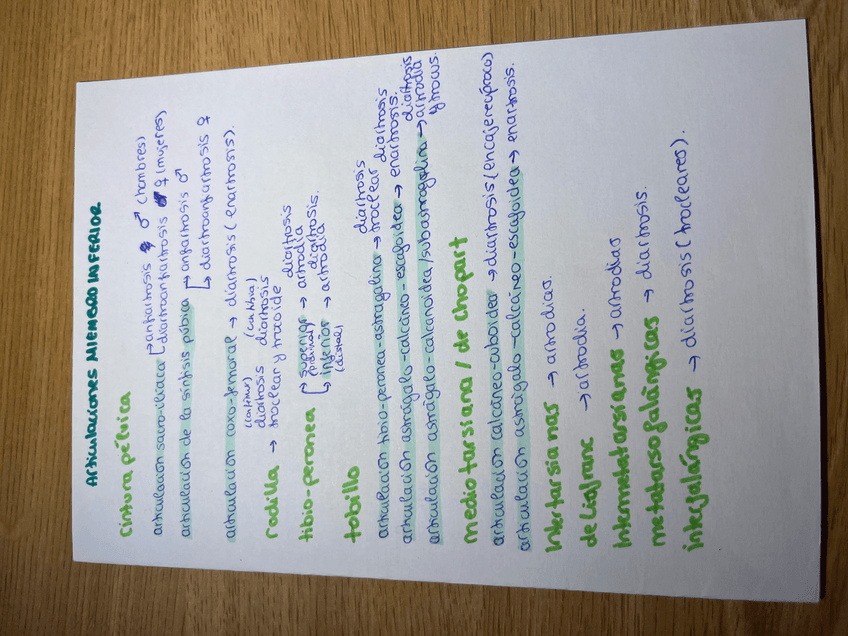 Articulaciones MIEMBRO INFERIOR
cintura pélvica
articulación sacro-iliaca → anfiartrosis ♂ (hombres)
→ diartroanfiartrosis ♀ (mujeres)
articulación de la sínfisis púbica → anfiartrosis ♂
→ diartroanfiartrosis ♀
articulación coxo-femoral → diartrosis (enartrosis).
(continua) (continua)
diartrosis diartrosis
rodilla → troclear y trocoide
tibio-peronea → superior → artrodia diartrosis
(proximal)
→ inferior → artrodia diartrosis.
(distal)
tobillo
articulación tibio-peronea-astragalina → troclear diartrosis
articulación astrágalo-calcáneo-escafoidea → enartrosis. diartrosis
articulación astrágalo-calcanoidea/subastragalina → artrodia diartrosis
y trocus.
medio tarsiana / de chopart
articulación calcáneo-cuboidea → diartrosis (encaje recíproco)
articulación astrágalo-calcáneo-escafoidea → enartrosis.
Intertarsianas → artrodias.
de Lisfranc → artrodia.
Intermetatarsianas → artrodias
metatarsofalángicas → diartrosis.
interfalángicas → diartrosis (trocleares).